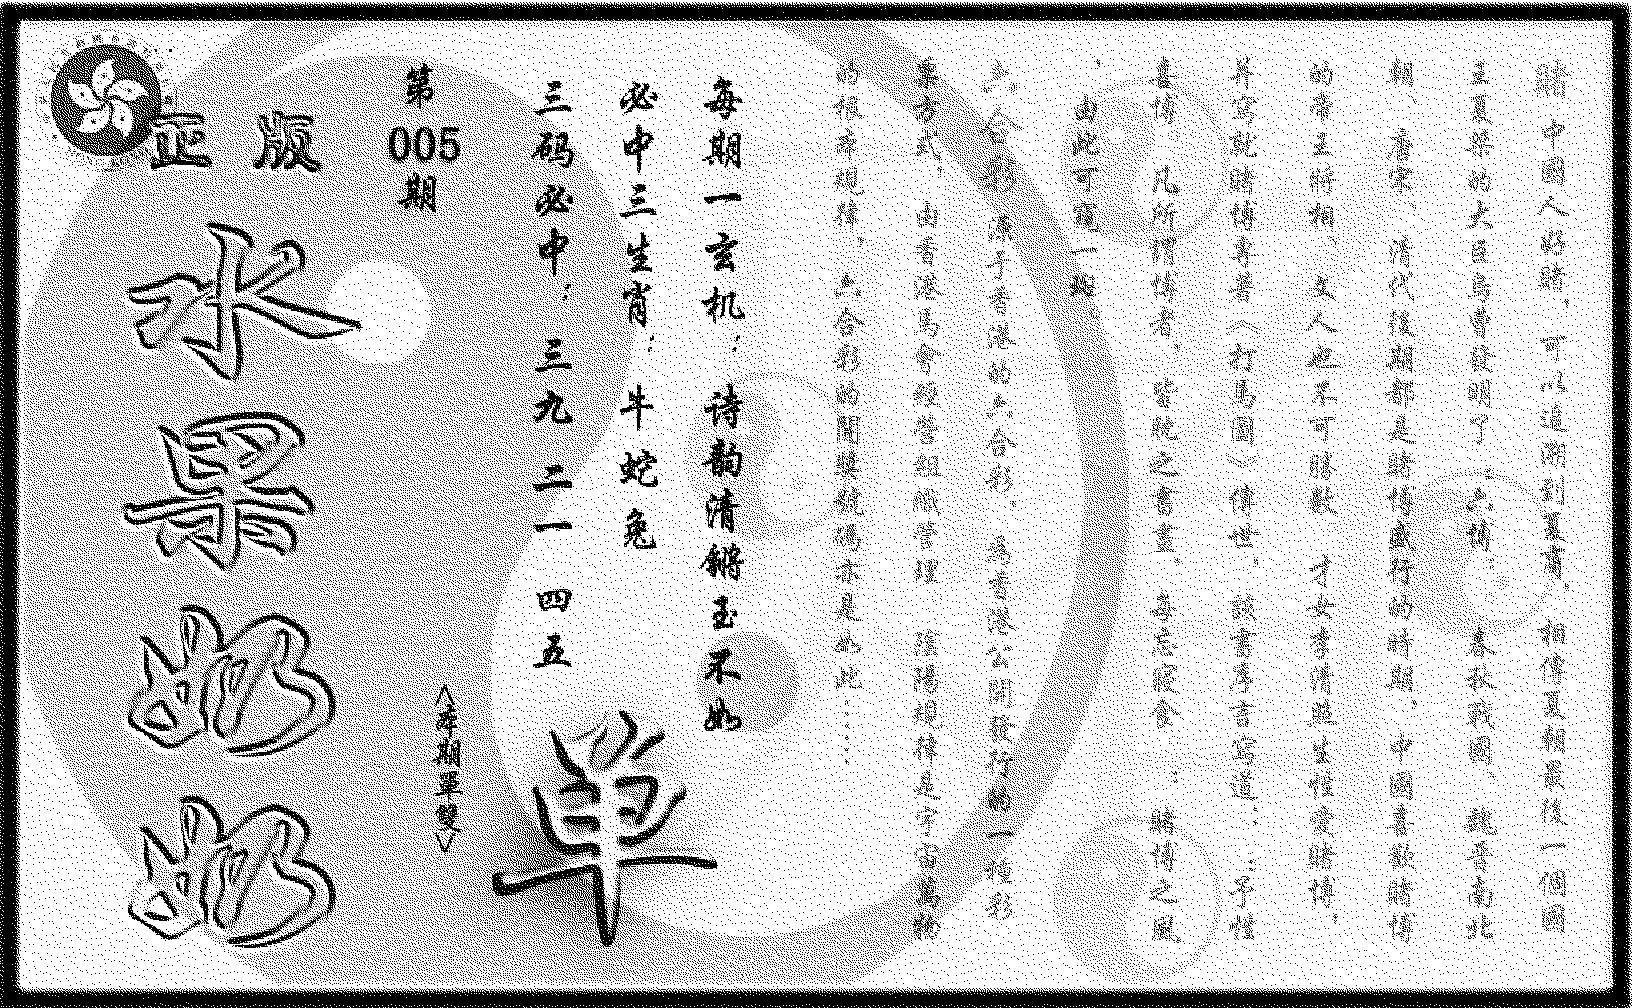 赌 中國人好賭，可以追溯到夏商。相傳夏朝最後一個國
王夏桀的大臣烏曹發明了：六博。 春秋戰國、魏晋南北
朝、唐宋、清代後期都是賭博盛行的時期，中國喜歡賭博
的帝王將相、文人也不可勝數。才女李清照生性愛賭博，
并寫就賭博專著〈打馬圖〉傳世。該書序言寫道：：予性
喜博，凡所謂博者，皆耽之晝夜，每忘寢食：。賭博之風
，由此可窺一斑。
六合彩，源于香港的六合彩，為香港公開發行的一種彩
票方式，由香港馬會經營組織管理。陰陽
的根本規律，六合彩的開獎號碼亦是如此……
每期一玄机：诗韵清锵玉不如
必中三生肖：牛蛇兔
三码必中：三九 二一 四五
第005期
單
正版
水果奶奶